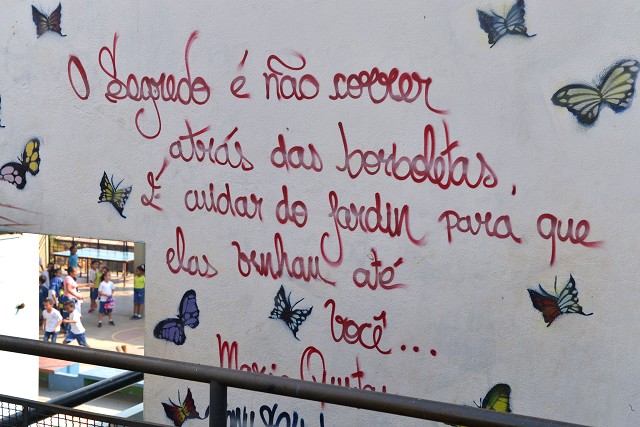 O Segredo é não correr
atrás das borboletas,
É cuidar do jardin para que
elas venham até
você...
Mario Quintana